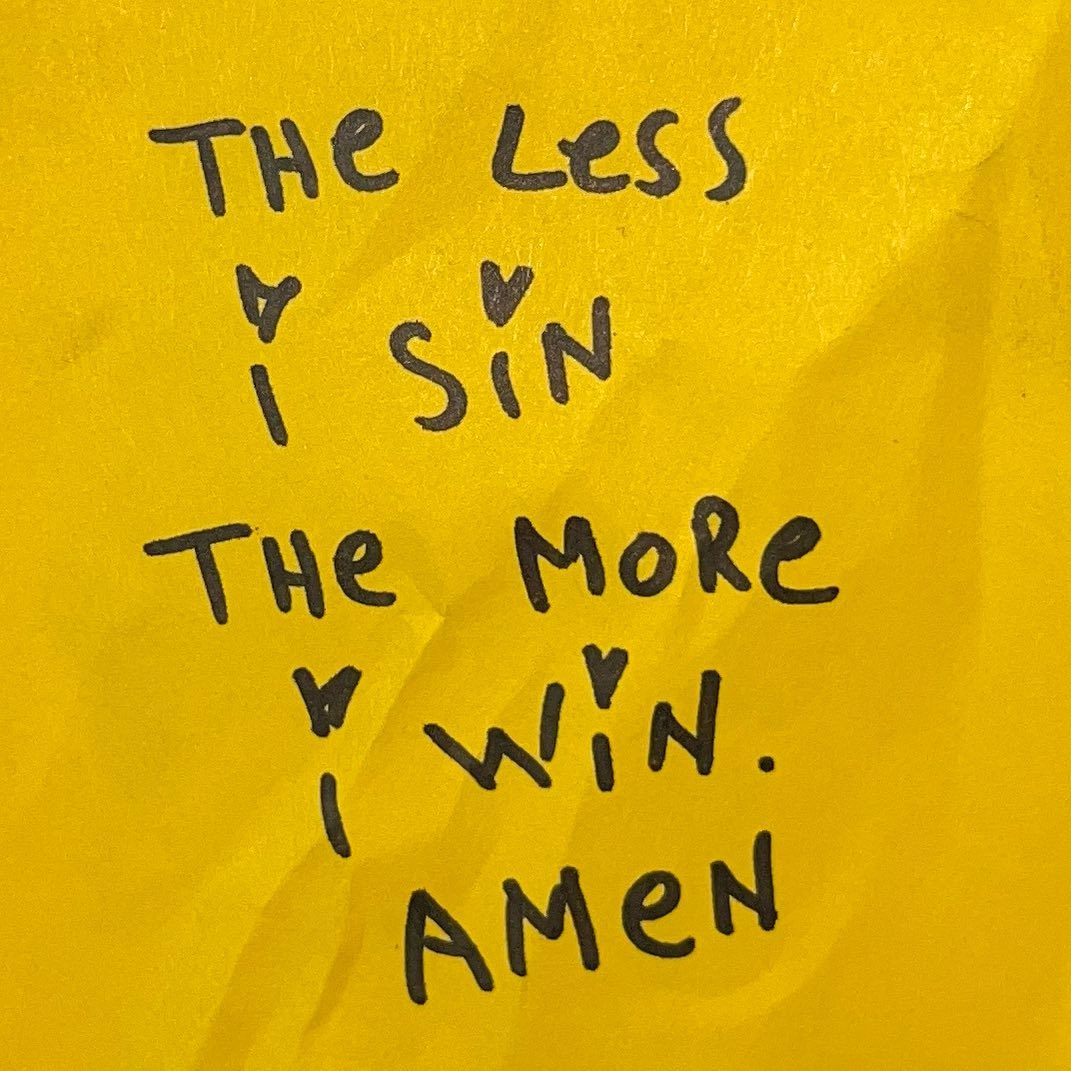 THe LeSS
i SiN
THe MoRe
i WiN.
AMeN